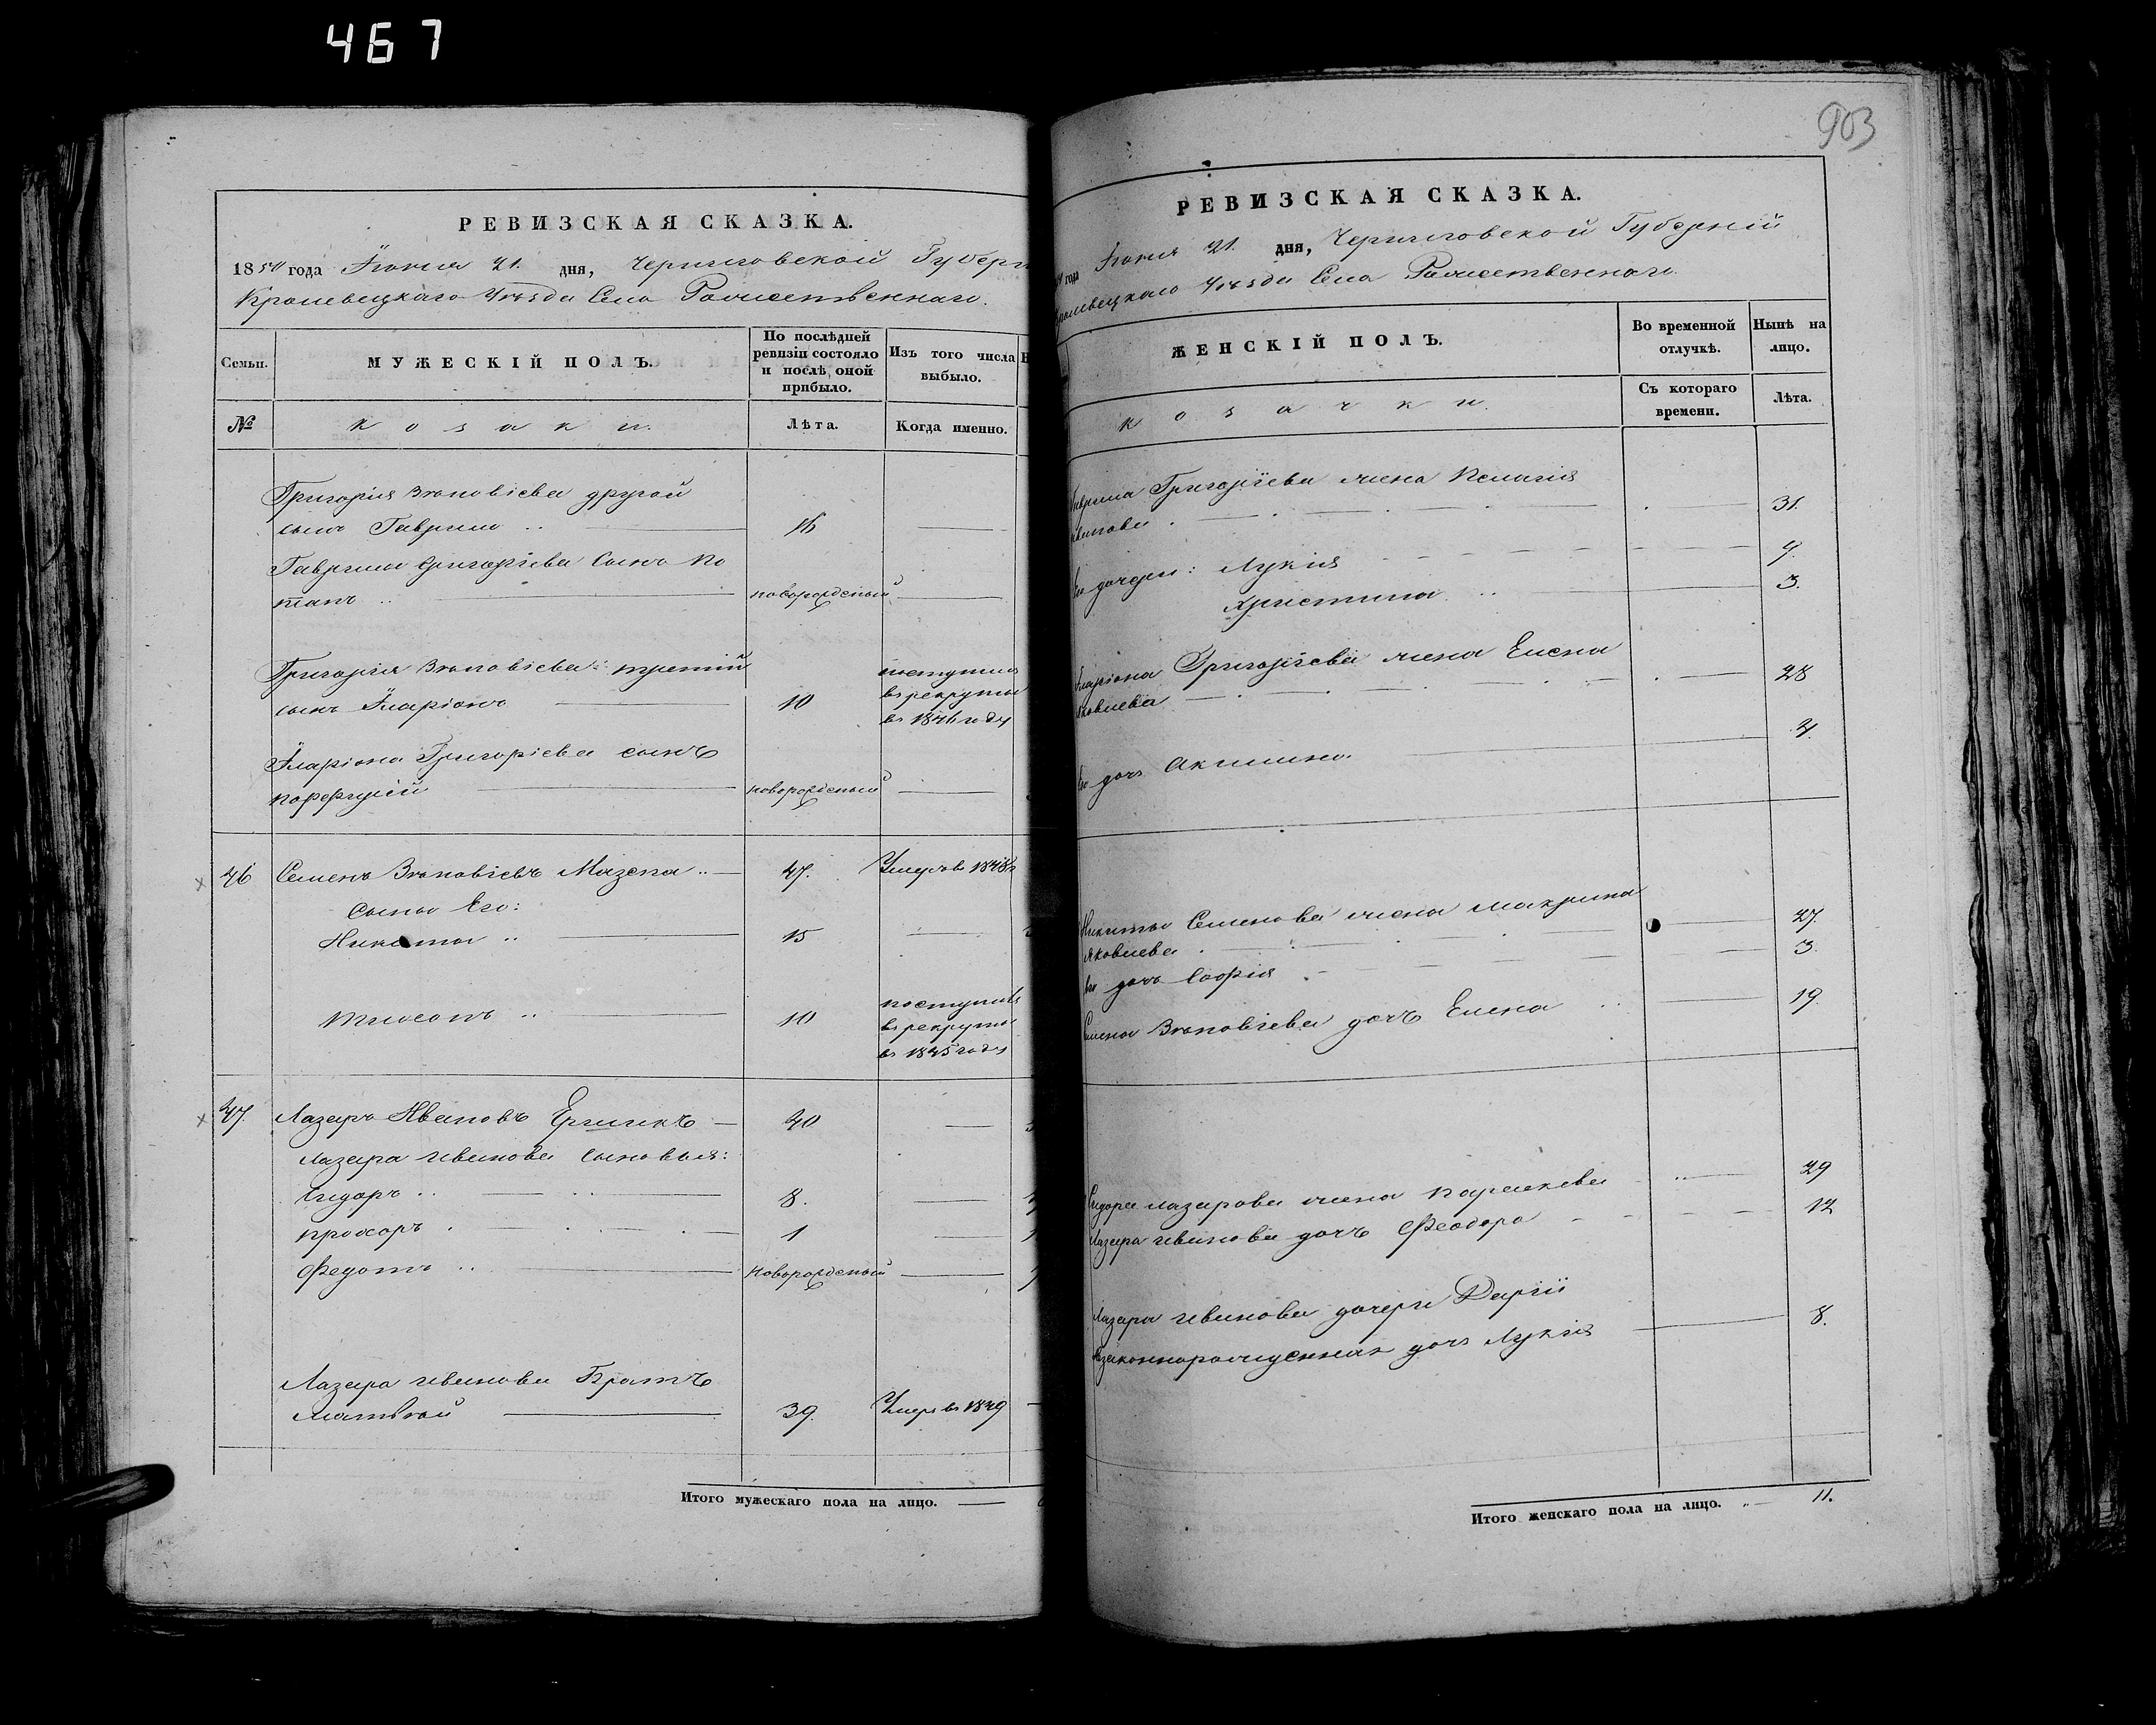 467
903
РЕВИЗСКАЯ СКАЗКА.
1850 года Іюня 21. дня, Черниговской Губерн
Кролевецкаго Уѣзда Села Рожественнаго.
Семьи.
МУЖЕСКІЙ ПОЛЪ.
По послѣдней ревизіи состояло и послѣ оной прибыло.
Изъ того числа выбыло.
№
козаки.
Лѣта.
Когда именно.
Григорія Зѣновіева другой
сынъ Гаврило 16
Гаврила Григоріева Сынъ По
тапъ новорожденый
Григорія Зѣновіева третій
сынъ Іларіонъ 10 поступилъ
въ рекруты
въ 1846 году
Іларіона Григоріева сынъ
Порфирій новорожденый
46 Семенъ Зѣновіевъ Мазепа 47. Умеръ въ 1848
Сыны Его:
Никита 15
10 поступилъ
въ рекруты
въ 1845 году
47. Лазаръ Ивановъ 40
Лазара Иванова Сыновья:
Сидоръ 8.
Прохоръ 1
Федотъ новорожденый
Лазара Иванова Братъ
Матвѣй 39. Умеръ въ 1849
Итого мужескаго пола на лицо.
РЕВИЗСКАЯ СКАЗКА.
года Іюня 21. дня, Черниговской Губерній
Уѣзда Села Рожественнаго.
ЖЕНСКІЙ ПОЛЪ.
Во временной отлучкѣ.
Нынѣ на лицо.
козачки.
Съ котораго времени.
Лѣта.
Григоріева жена Пелагія
31.
Его дочери: Лукія
Христина 3.
Григоріева жена Елена
Яковлева 28
Его дочь Акилина.
Никиты Семенова жена Макрина
Яковлева 27.
Его дочь Софія 3.
Семена Зѣновіева дочь Елена 19.
Сидора Лазарова жена Параскева 29
Лазара Иванова дочь Феодора 12
Лазара Иванова дочери Даріи
незаконнорожденная дочь Лукія 8.
Итого женскаго пола на лицо. 11.